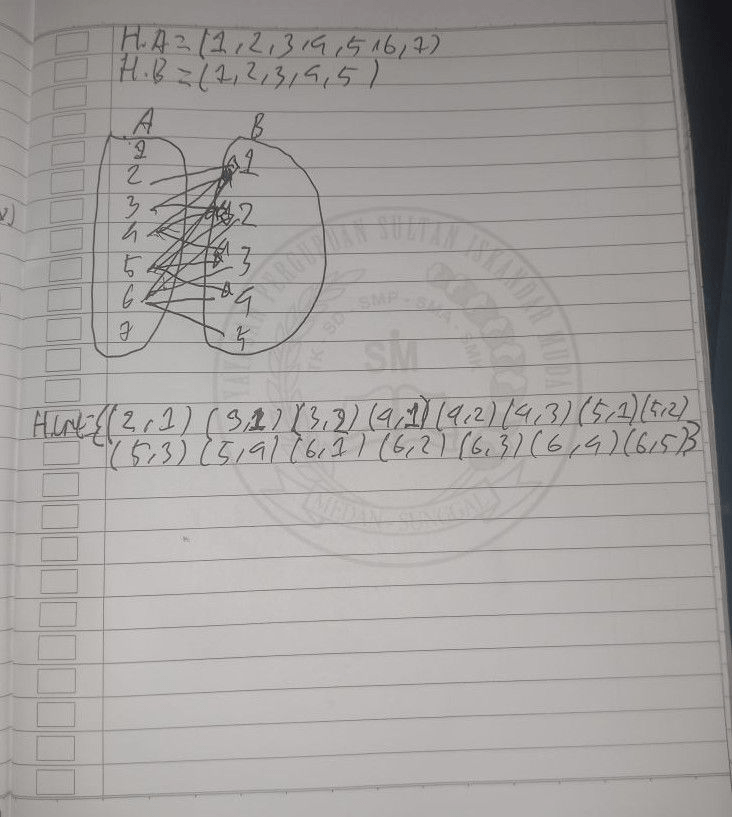 H.A = (1,2,3,4,5,6,7)
H.B = (1,2,3,4,5)
A B
1
2 1
3
4 2
5 3
6 4
7 5
YAYASAN PERGURUAN SULTAN ISKANDAR MUDA
TK · SD · SMP · SMA · SMK
SIM
H.urt = {(2,1) (3,1) (3,2) (4,1) (4,2) (4,3) (5,1) (5,2)
(5,3) (5,4) (6,1) (6,2) (6,3) (6,4) (6,5)}
MEDAN - SUNGGAL